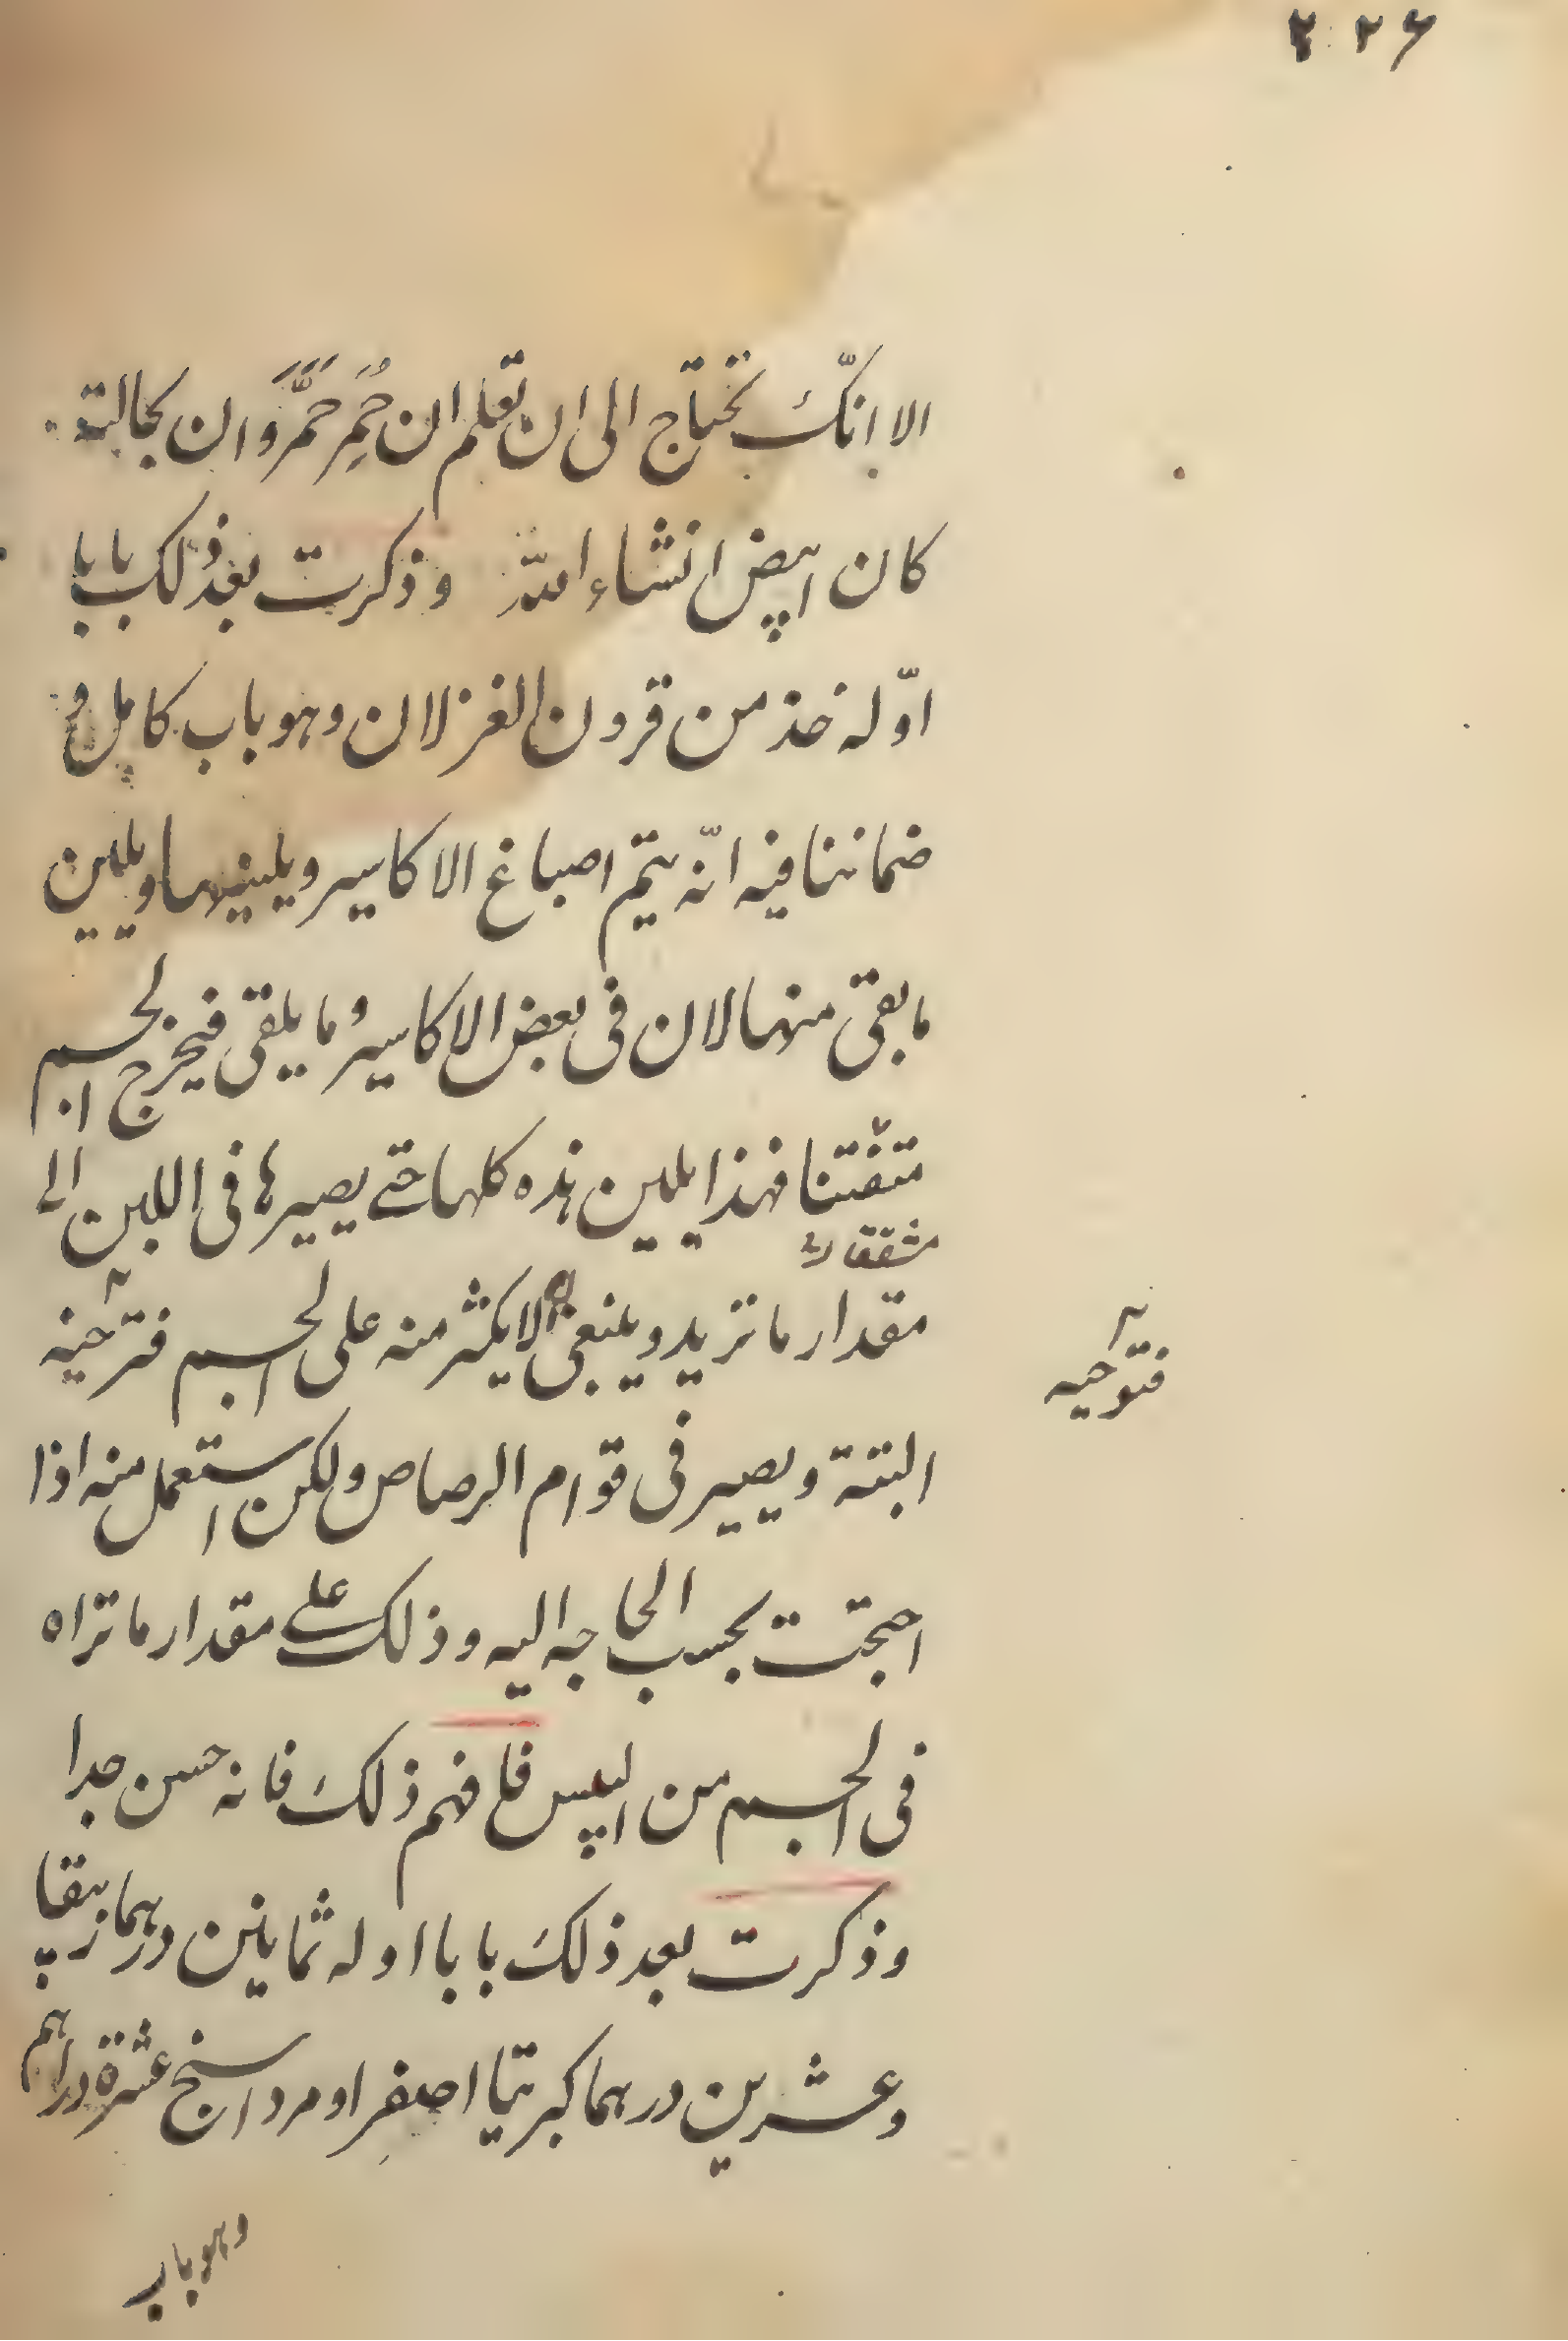 ٢٢٦
الا انّك تحتاج الى ان تعلم ان حُمِرَ حَمَّرَ وان بحالته
كان ابيض انشاء الله وذكرت بعد ذلك بابا
اوّله خذ من قرون الغزلان وهو باب كامل و
ضماننا فيه انّه يتم اصباغ الاكاسير ويلينها ويلين
ما بقى منها لان فى بعض الاكاسير وما يلقى فيخرج الجسم
متفتتا فهذا يلين هذه كلها حتى يصيرها فى اللين الى
مشققا
مقدار ما تريد وينبغى الا يكثر منه على الجسم فترخيه
فتوحيه
البتة ويصير فى قوام الرصاص ولكن استعمل منه اذا
احتجت بحسب الحاجه اليه وذلك على مقدار ما تراه
فى الجسم من اليبس فافهم ذلك فانه حسن جدا
وذكرت بعد ذلك بابا اوله ثمانين درهما زيبقا
وعشرين درهما كبريتا اصفر او مرداسنج عشرة دراهم
وهو باب